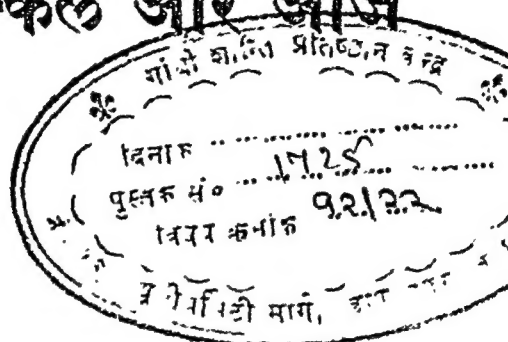 कल और आज
गांधी शान्ति प्रतिष्ठान केन्द्र
दिनांक ..................
पुस्तक सं० ... 1725 ...
विषय क्रमांक 92/22
यूनीवर्सिटी मार्ग,